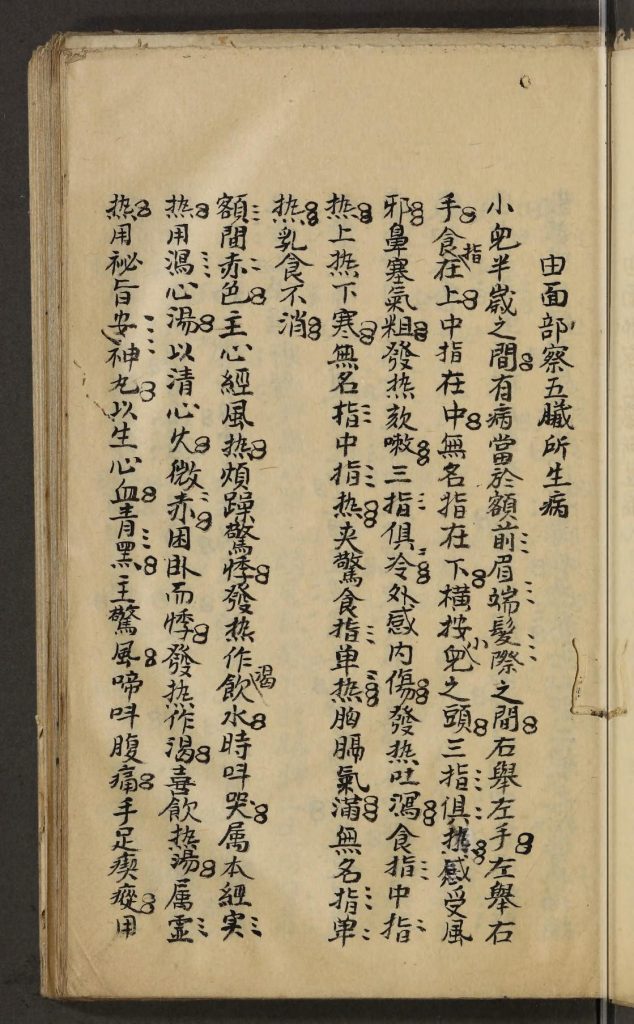 由面部察五臟所生病
小兒半歲之間有病當於額前眉端髮際之間右舉左手左舉右
手食指在上中指在中無名指在下橫按小兒之頭三指俱热感受風
邪鼻塞氣粗發热欬嗽三指俱冷外感內傷發热吐瀉食指中指
热上热下寒無名指中指热夾驚食指单热胸膈氣滿無名指单
热乳食不消
額間赤色主心經風热煩躁驚悸發热作渴飲水時呌哭属本經实
热用瀉心湯以清心火微赤困卧而悸發热作渴喜飲热湯属虛
热用祕旨安神丸以生心血青黑主驚風啼呌腹痛手足瘈瘲用